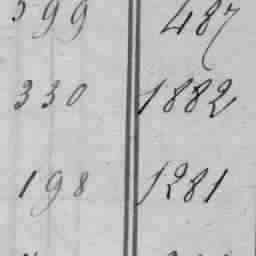 599 487
330 1882
198 1281